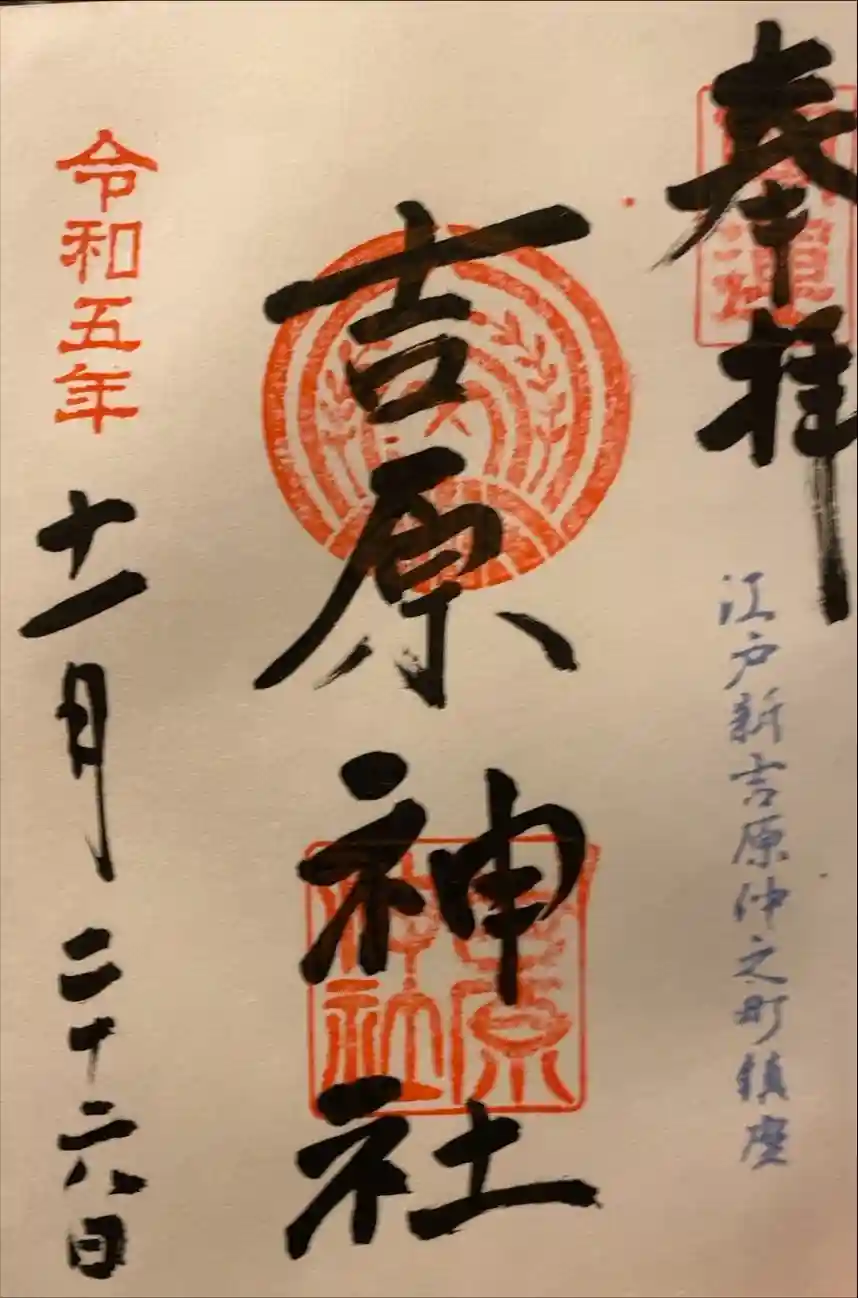 奉拝
江戸新吉原仲之町鎮座
吉原神社
吉原神社
令和五年
十一月二十六日